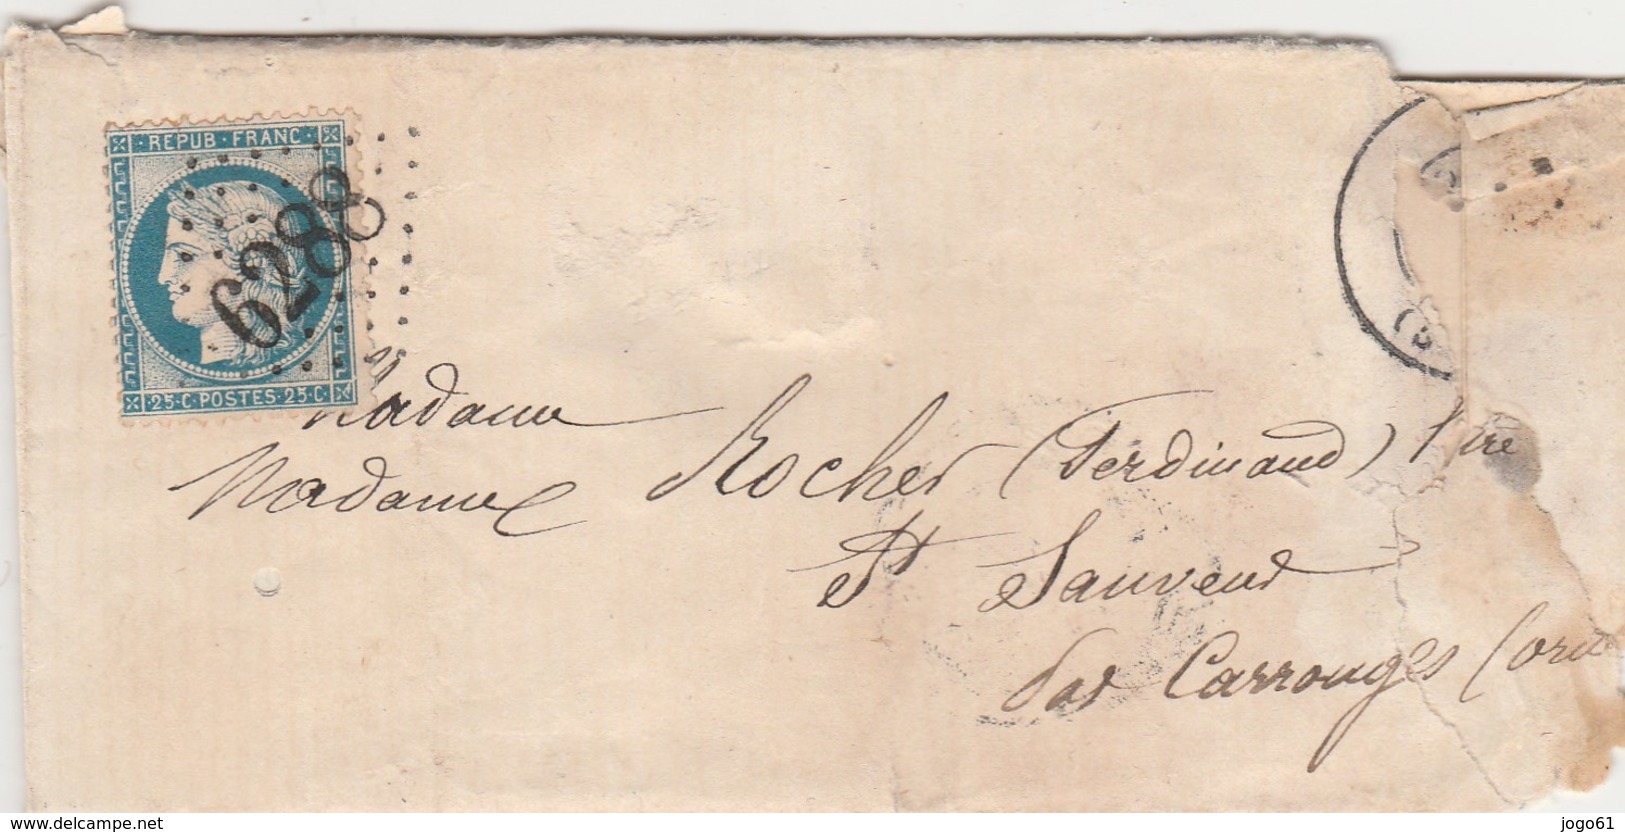 REPUB · FRANC
6288
25·C·POSTES·25·C
Madame
Madame Rocher (Ferdinand)
St Sauveur
Par Carrouges (orne
www.delcampe.net
jogo61